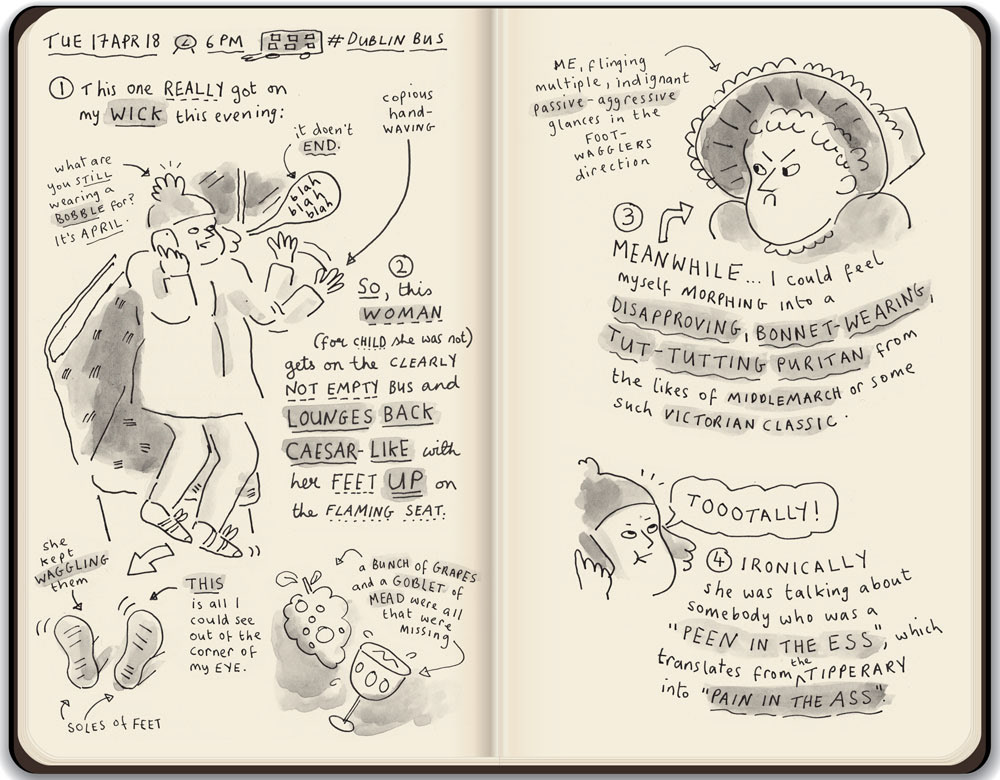 TUE 17 APR 18 6 PM # DUBLIN BUS
① This one REALLY got on
my WICK this evening:
copious
hand-
WAVING
it doen't
END.
what are
you STILL
wearing a
BOBBLE for?
It's APRIL.
blah
blah
blah
②
So, this
WOMAN
(for CHILD she was not)
gets on the CLEARLY
NOT EMPTY BUS and
LOUNGES BACK
CAESAR-LIKE with
her FEET UP on
the FLAMING SEAT.
she
kept
WAGGLING
them
THIS
is all I
could see
out of the
corner of
my EYE.
SOLES of FEET
a BUNCH of GRAPES
and a GOBLET of
MEAD were all
that were
missing
ME, flinging
multiple, indignant
passive-aggressive
glances in the
FOOT-
WAGGLERS
direction
③
MEANWHILE... I could feel
myself MORPHING into a
DISAPPROVING, BONNET-WEARING,
TUT-TUTTING PURITAN from
the likes of MIDDLEMARCH or some
such VICTORIAN CLASSIC.
TOOOTALLY!
④ IRONICALLY
she was talking about
somebody who was a
"PEEN IN THE ESS", which
translates from the TIPPERARY
into "PAIN IN THE ASS".